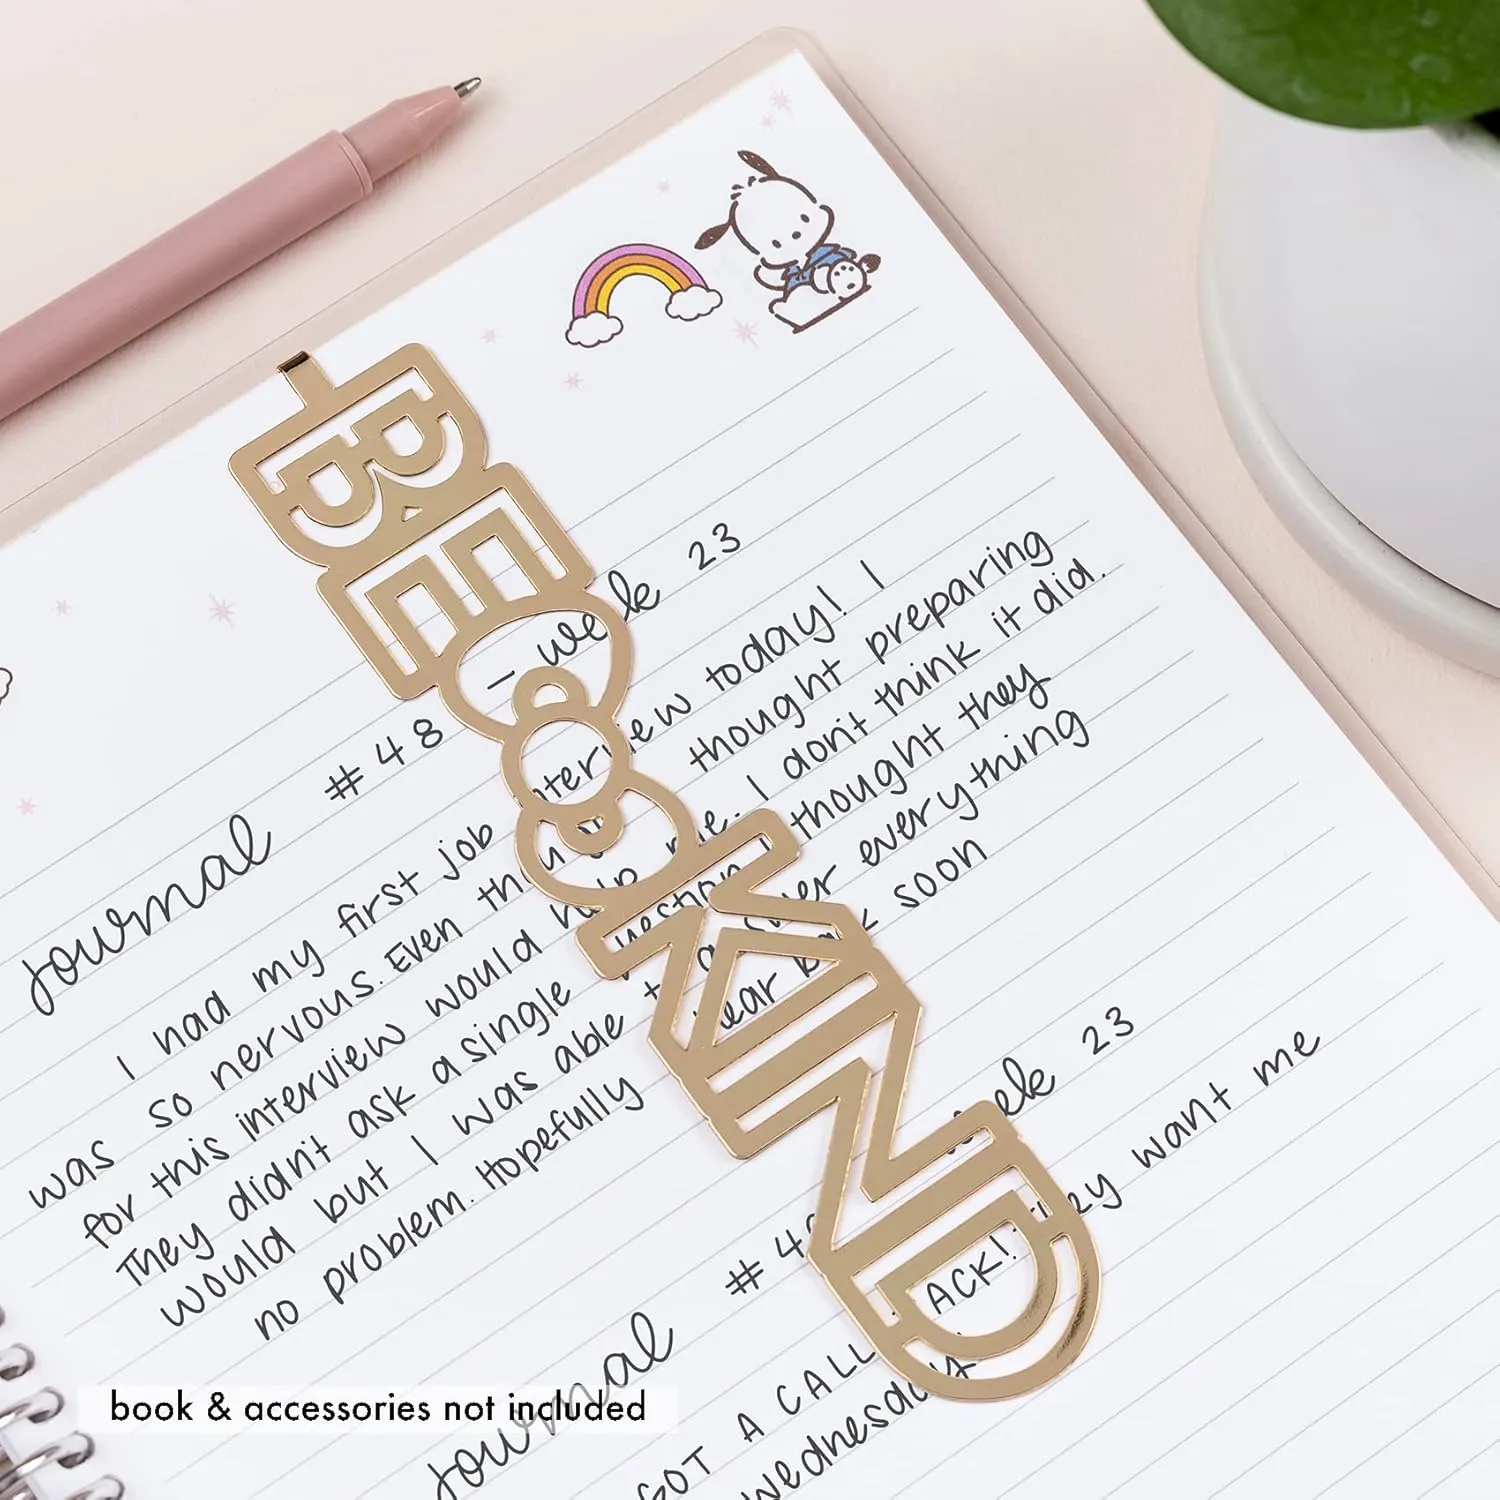 BE KIND
Journal #48 - week 23
I had my first job interview today! I
was so nervous. Even thou thought preparing
for this interview would help me. I don't think it did.
They didn't ask a single question I thought they
would but I was able to answer everything
no problem. Hopefully hear back soon
Journal #49 week 23
GOT A CALL BACK! They want me
Wednesday
book & accessories not included